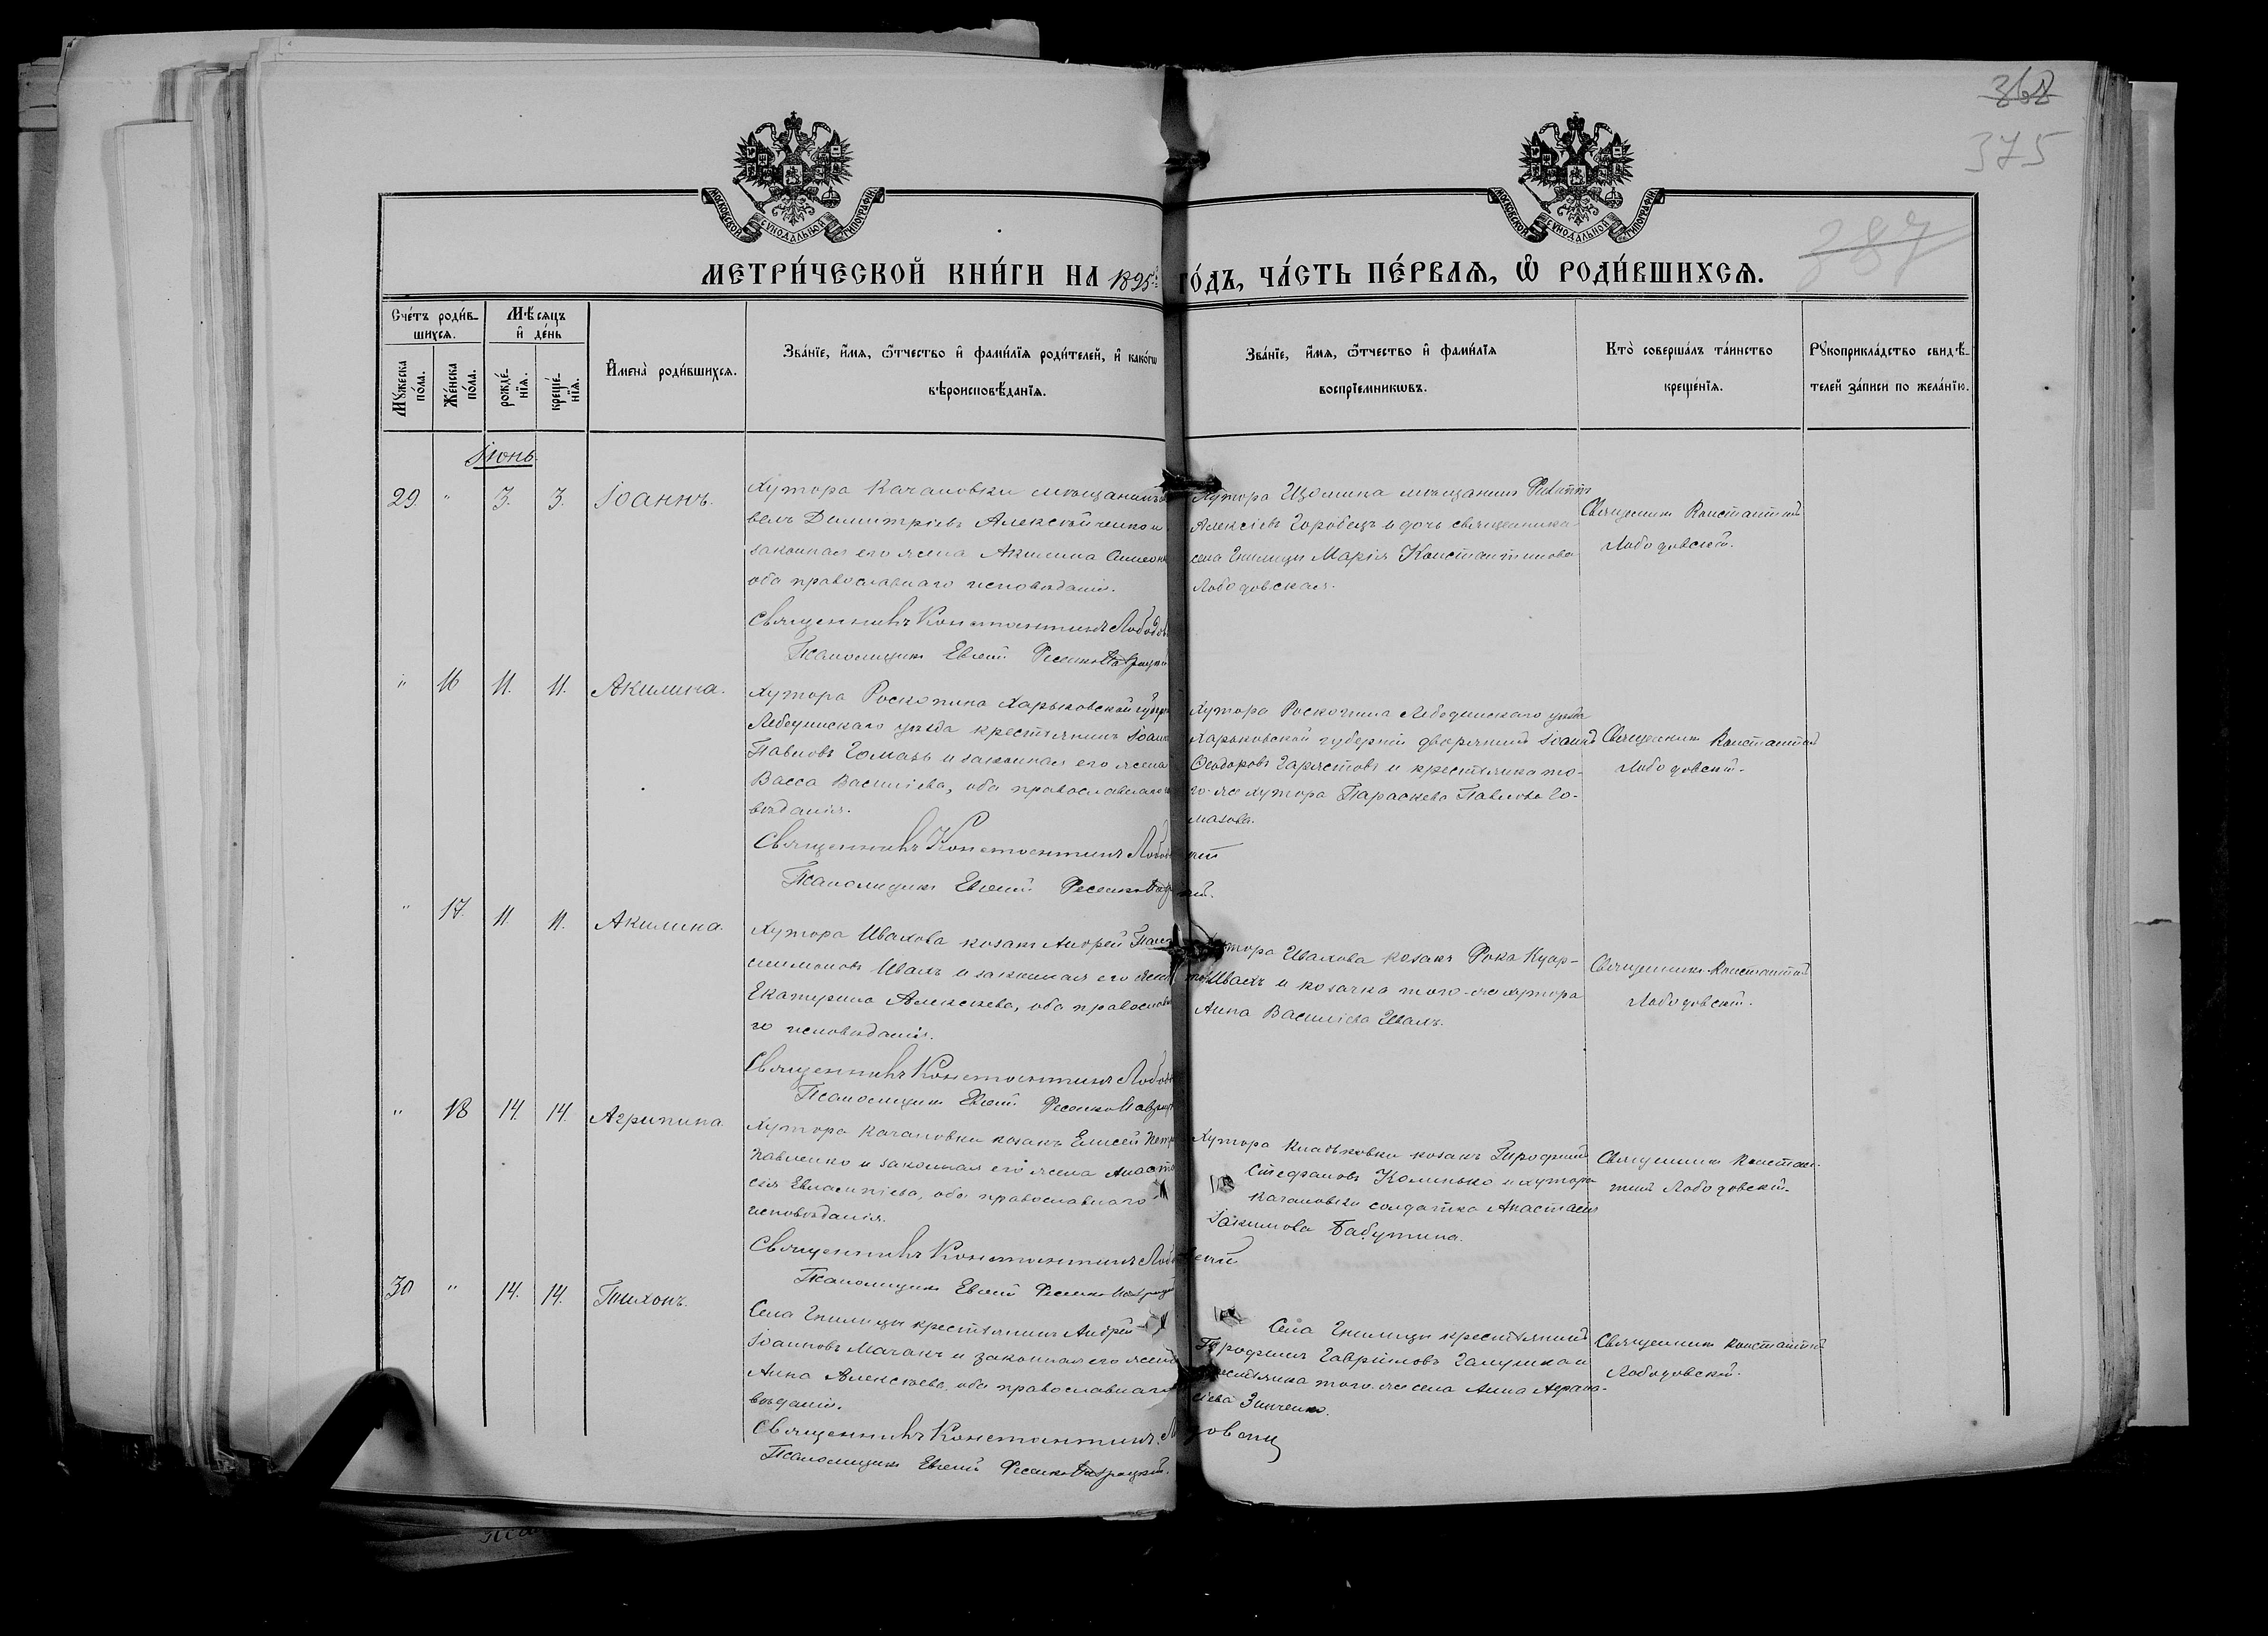 368
375
387
МОСКОВСКОЙ СѴНОДАЛЬНОЙ ТИПОГРАФІИ
МОСКОВСКОЙ СѴНОДАЛЬНОЙ ТИПОГРАФІИ
МЕТРИ́ЧЕСКОЙ КНИ́ГИ НА 1895й ГО́ДЪ, ЧА́СТЬ ПЕ́РВАѦ, Ѡ҆ РОДИ́ВШИХСѦ.
Сче́тъ роди́в-
шихсѧ.
Мꙋ́жеска по́ла.
Же́нска по́ла.
Мѣ́сѧцъ
и҆ де́нь
рожде́-нїѧ.
креще́-нїѧ.
И҆мена̀ роди́вшихсѧ.
Зва́нїе, и҆́мѧ, ѻ҆́тчество и҆ фами́лїѧ роди́телей, и҆ како́гѡ
вѣроисповѣ́данїѧ.
Зва́нїе, и҆́мѧ, ѻ҆́тчество и҆ фами́лїѧ
воспрїе́мникѡвъ.
Кто̀ соверша́лъ та́инство
креще́нїѧ.
Рꙋкоприкла́дство свидѣ́-
телей за́писи по жела́нїю.
Іюнь.
29. " 3. 3. Іоаннъ.
Хутора Качановки мѣщанинъ
велъ Димитріевъ Алексѣйченко и
законная его жена Акилина Симеон
оба православнаго исповѣданія.
Священникъ Константинъ Лободов
Псаломщикъ Евгеній Фесенко
Хутора мѣщанинъ Филиппъ
Алексіевъ Горобецъ и дочь священника
села Гнилицы Марія Константинова
Лободовская.
Священникъ Константинъ
Лободовскій.
" 16 11. 11. Акилина.
Хутора Роскопина Харьковской губер
Лебединскаго уѣзда крестьянинъ Іоанн
Павловъ Гомазъ и законная его жена
Васса Василіева, оба православнаго
вѣданія.
Священникъ Константинъ Лободовскій
Псаломщикъ Евгеній Фесенко
Хутора Роскопина Лебединскаго уѣзда
Харьковской губерніи дворянинъ Іоаннъ
Ѳеодоровъ и крестьянка то-
го-же хутора Параскева Павлова Го-
мазова.
Священникъ Константинъ
Лободовскій.
" 17. 11 11. Акилина.
Хутора Ивахова козакъ Андрей Пант
елимоновъ Ивахъ и законная его жена
Екатерина Алексѣева, оба православна
го исповѣданія.
Священникъ Константинъ Лободов
Псаломщикъ Евгеній Фесенко
Хутора Ивахова козакъ Фока
Ивахъ и козачка того-же хутора
Анна Василіева Ивахъ.
Священникъ Константинъ
Лободовскій.
" 18 14. 14. Агрипина.
Хутора Качановки козакъ Елисей Петр
Павленко и законная его жена Анаста
сія Евлампіева, оба православнаго
исповѣданія.
Священникъ Константинъ Лободовскій
Псаломщикъ Евгеній Фесенко
Хутора козакъ
Стефановъ и хутора
Качановки солдатка Анастасія
Іакимова Бабутина.
Священникъ Констан-
тинъ Лободовскій.
30 " 14. 14. Тихонъ.
Села Гнилицы крестьянинъ Андрей
Іоанновъ Мачакъ и законная его жена
Анна Алексѣева, оба православнаго
вѣданія.
Священникъ Константинъ Лободовскій
Псаломщикъ Евгеній Фесенко
Села Гнилицы крестьянинъ
Трофимъ Гавриловъ Галушка и
крестьянка того-же села Анна Аѳана-
сіева Зинченко.
Священникъ Константинъ
Лободовскій.